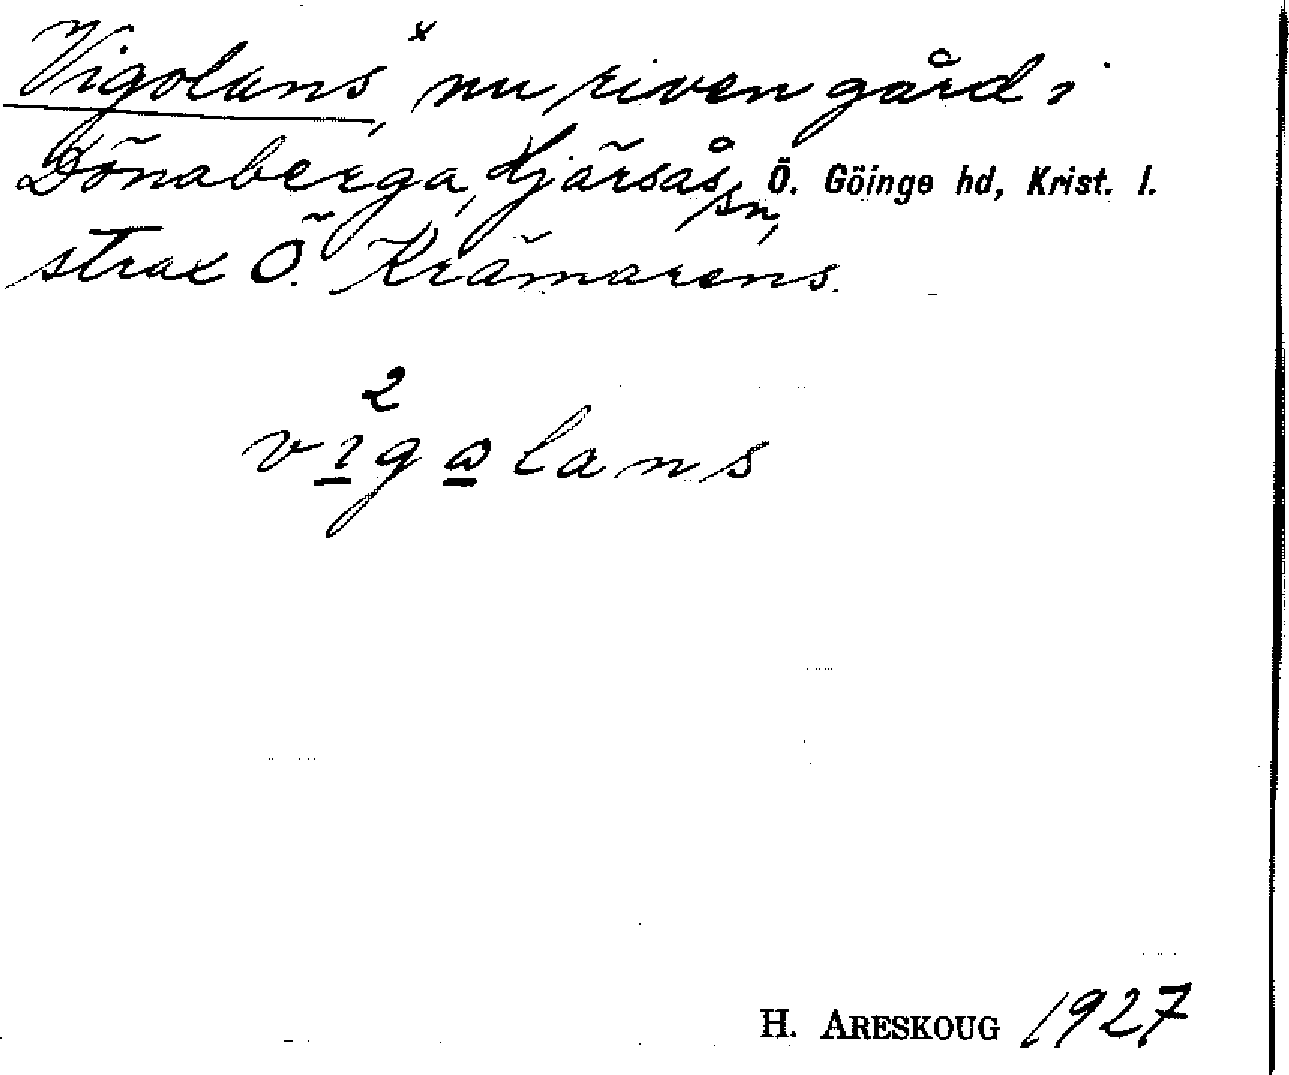 Vigolans ˣ, nu riven gård i
Dönaberga, Hjärsås sn, Ö. Göinge hd, Krist. l.
strax Ö. Krämarens.
2
vigolans
H. ARESKOUG 1927